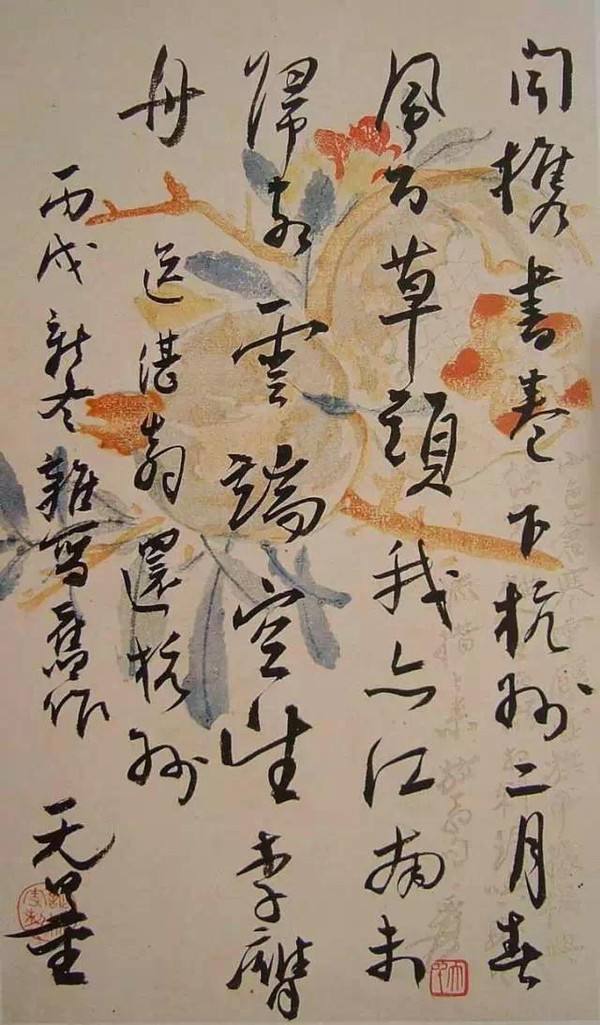 閒攜書卷下杭州二月春
風百草頭我亦江南未
歸者雲端空望李膺
舟
送湛翁還杭州
丙戌新冬雜寫舊作
无量